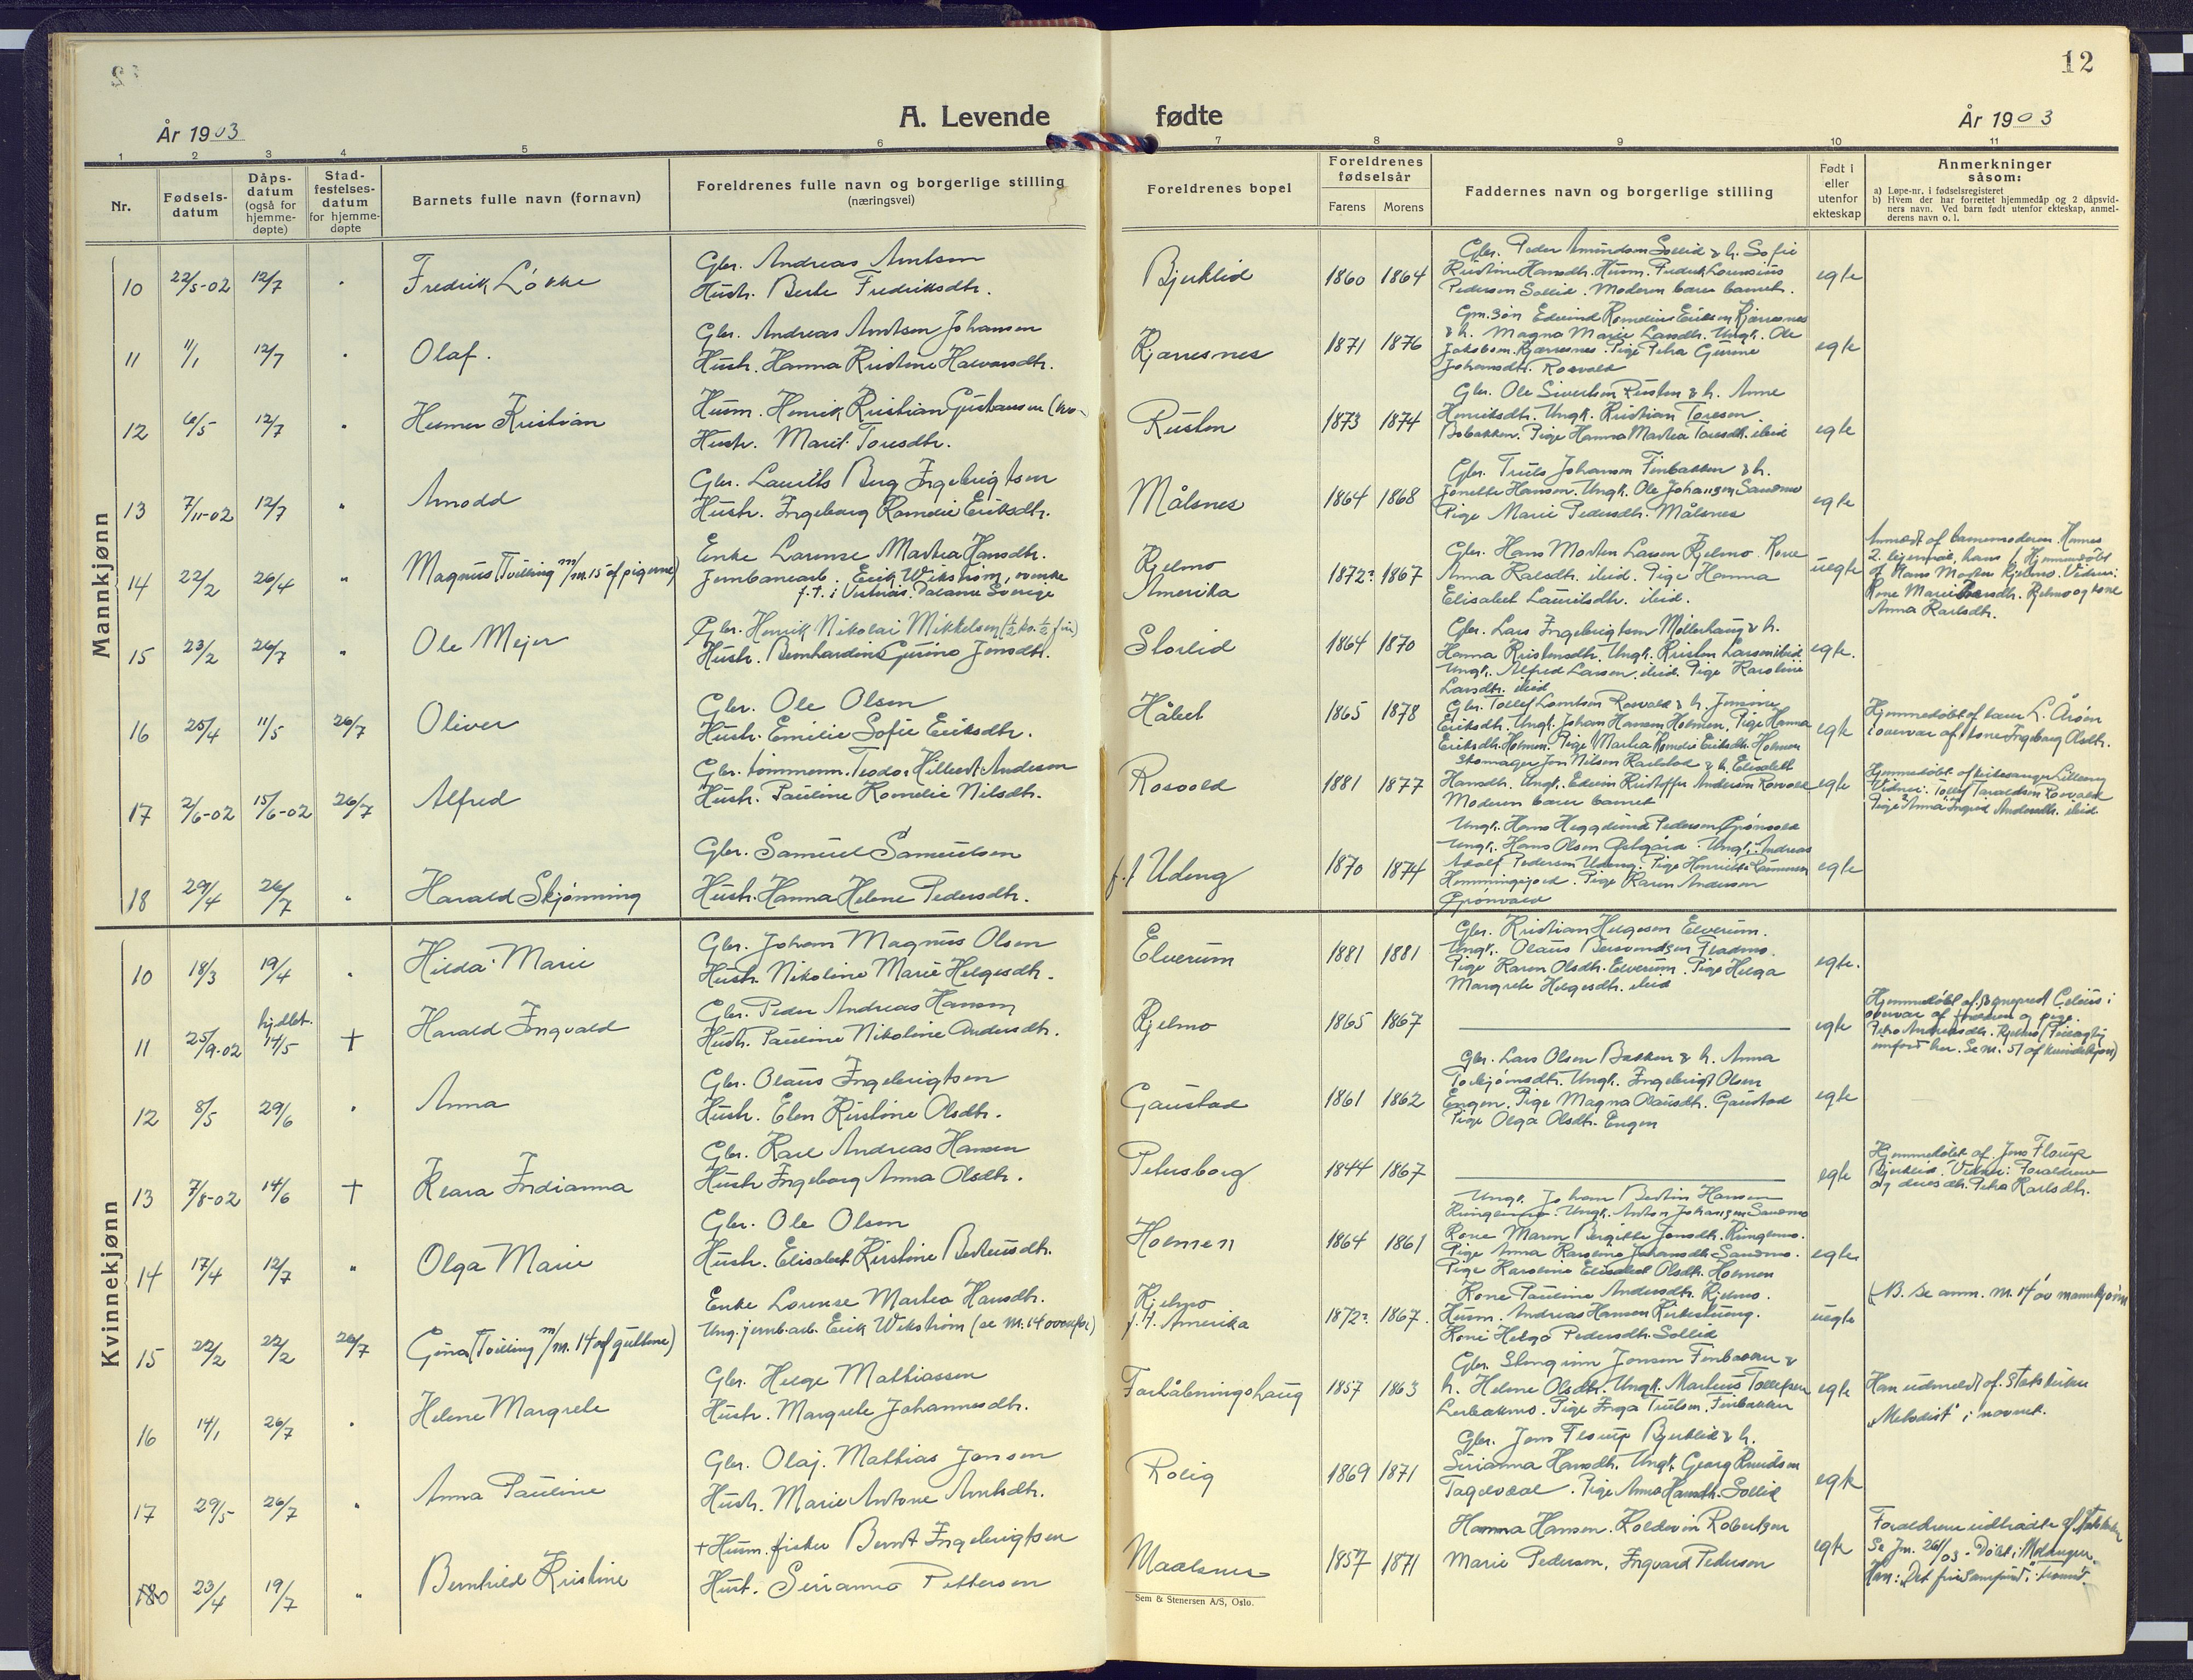 12
A. Levende fødte
År 1903
År 1903
1 2 3 4 5 6 7 8 9 10 11
Nr.
Fødsels-
datum
Dåps-
datum
(også for
hjemme-
døpte)
Stad-
festelses-
datum
for hjemme-
døpte
Barnets fulle navn (fornavn)
Foreldrenes fulle navn og borgerlige stilling
(næringsvei)
Foreldrenes bopel
Foreldrenes
fødselsår
Farens Morens
Faddernes navn og borgerlige stilling
Født i
eller
utenfor
ekteskap
Anmerkninger
såsom:
a) Løpe-nr. i fødselsregisteret
b) Hvem der har forrettet hjemmedåp og 2 dåpsvid-
ners navn. Ved barn født utenfor ekteskap, anmel-
derens navn o. l.
Mannkjønn
10 22/5-02 12/7 Fredrik Løkke
Gbr. Andreas Arntsen
Hustr. Berte Fredriksdtr.
Bjerklid 1860 1864
Gbr. Peder Amundsen Sollid & h. Sofie
Kristine Hansdtr. Husm. Fredrik Lorensius
Pedersen Sollid. Moderen barer barnet.
egte
11 11/1 12/7 Olaf.
Gbr. Andreas Arntsen Johansen
Hustr. Hanna Kristine Halvardsdtr.
Kjærresnes 1871 1876
Gm. søn Edvind Romelius Eriksen Kjærresnes
& h. Magna Marie Larsdtr. Ungk. Ole
Jakobsen Kjærresnes. Pige Petra Gurine
Johansdtr. Rosvold
egte
12 6/5 12/7 Helmer Kristian
Husm. Henrik Kristian Gustavsen (kv.
Hustr. Marit Toresdtr.
Rusten 1873 1874
Gbr. Ole Sivertsen Rusten & h. Anne
Henriksdtr. Ungk. Kristian Toresen
Bobakken. Pige Hanna Martea Toresdtr. ibid
egte
13 7/11-02 12/7 Arnodd
Gbr. Laurits Berg Ingebrigtsen
Hustr. Ingeborg Romelie Eriksdtr.
Målsnes 1864 1868
Gbr. Truls Johansen Finbakken & h.
Jonette Hansen. Ungk. Ole Johansen Sandmo
Pige Marie Pedersdtr. Målsnes
egte
14 22/2 26/4 Magnus (Tvilling m/nr. 15 af pigerne)
Enke Lorense Martea Hansdtr.
Jernbanearb. Erik Wikstrøm, svenske
f. t. i Vesterås. Dalarne Sverige
Kjelmo
Amerika 1872? 1867
Gbr. Hans Morten Larsen Kjelmo. Kone
Anna Karlsdtr. ibid. Pige Hanna
Elisabet Lauritsdtr. ibid.
uegte
Anmeldt af barnemoderen. Hennes
2. leiermål, hans 1. Hjemmedøbt
af Hans Morten Kjelmo. Vidner:
Kone Marie Larsdtr. Kjelmo og kone
Anna Karlsdtr.
15 23/2 26/7 Ole Mejer
Gbr. Henrik Nikolai Mikkelsen (½ kv. ½ fin)
Hustr. Bernhardine Gurine Jonsdtr.
Storlid 1864 1870
Gbr. Lars Ingebrigtsen Møllerhaug & h.
Hanna Kristensdtr. Ungk. Kristen Larsen ibid
Ungk. Alfred Larsen, ibid. Pige Karoline
Larsdtr. ibid
egte.
16 25/4 11/5 26/7 Oliver
Gbr. Ole Olsen
Hustr. Emilie Sofie Eriksdtr.
Håbet 1865 1878
Gbr. Tollef Lorntsen Rosvold & h. Jensine
Eriksdtr. Ungk. Johan Hansen Holmen. Pige Hanna
Eriksdtr. Holmen. Pige Martea Romelie Eriksdtr. Holmen
egte
Hjemmedøbt af lærer L. Årøen
i overvær af kone Ingeborg Olsdtr.
17 2/6-02 15/6-02 26/7 Alfred
Gbr. tømmerm. Teodor Hilbert Andersen
Hustr. Pauline Romelie Nilsdtr.
Rosvold 1881 1877
Skomager Jon Nilsen Karlstad & h. Elisabeth
Hansdtr. Ungk. Edvin Kristoffer Andersen Rosvold
Moderen barer barnet
egte
Hjemmedøbt af kirkesanger Lilleeng
Vidner: Tollef Taraldsen Rosvold
Pige Anna Ingred Andersdtr. ibid.
18 29/4 26/7 Harald Skjønning
Gbr. Samuel Samuelsen
Hustr. Hanna Helene Pedersdtr.
f. t. Udeng 1870 1874
Ungk. Hans Heggelund Pedersen Grønvold
Ungk. Hans Olsen Østgård. Ungk. Andreas
Adolf Pedersen Udeng. Pige Henrikke Rasmussen
Hemmingsjord. Pige Karen Andersen
Grønvold
egte
Kvinnekjønn
10 18/3 19/4 Hilda Marie
Gbr. Johan Magnus Olsen
Hustr. Nikoline Marie Helgesdtr.
Elverum 1881 1881
Gbr. Kristian Helgesen Elverum.
Ungk. Olaus Bersvendsen Fladmo.
Pige Karen Olsdtr. Elverum. Pige Helga
Margrete Helgesdtr. ibid
egte.
11 25/9-02 hjdbt. 14/5 + Harald Ingvald
Gbr. Peder Andreas Hansen
Hustr. Pauline Nikoline Andersdtr.
Kjelmo 1865 1867
egte
Hjemmedøbt af sogneprest Celius i
overvær af faderen og pige
Petra Andreasdtr. Kjelmo (Feilagtig
innført her. Se nr. 51 af kvindekjøn)
12 8/5 29/6 Anna
Gbr. Olaus Ingebrigtsen
Hustr. Elen Kirstine Olsdtr.
Gaustad 1861 1862
Gbr. Lars Olsen Bakken & h. Anna
Torbjørnsdtr. Ungk. Ingebrigt Olsen
Engen. Pige Magna Olausdtr. Gaustad
Pige Olga Olsdtr. Engen
egte
13 7/8-02 14/6 + Klara Indianna
Gbr. Karl Andreas Hansen
Hustr. Ingeborg Anna Olsdtr.
Petersborg 1844 1867
egte
Hjemmedøbt af. Jens Florup
Bjerklid. Vidner: Forældrene
og deres dtr. Petra Karlsdtr.
14 17/4 12/7 Olga Marie
Gbr. Ole Olsen
Hustr. Elisabet Kirstine Berteusdtr.
Holmen 1864 1861
Ungk. Johan Bertin Hansen
Kongsmo. Ungk. Anton Johansen Sandmo
Kone Maren Bergitte Jonsdtr. Kongsmo.
Pige Anna Karoline Johansdtr. Sandmo.
Pige Karoline Elisabet Olsdtr. Holmen
egte
15 22/2 22/2 26/7 Gina (Tvilling m/nr. 14 af guttene)
Enke Lorense Martea Hansdtr.
Ung. jernb.arb. Erik Wikstrøm (se nr. 14 ovenfor)
Kjelmo
f. t. Amerika 1872? 1867.
Kone Pauline Andersdtr. Kjelmo.
Husm. Andreas Hansen Kirkestueng.
Kone Helga Pedersdtr. Sollid
uegte
(B. Se anm. nr. 14 av mannkjønn
16 14/1 26/7 Helene Margrete
Gbr. Helge Mathiassen
Hustr. Margrete Johannesdtr.
Forhåbningshaug 1857 1863
Gbr. Stengrim Jonsen Finbakken &
h. Helene Olsdtr. Ungk. Marteus Tollefsen
Lerbakmo. Pige Inga Trulsen. Finbakken
egte
Han udmeldt af. Statskirken
"Metodist" i navnet.
17 29/5 26/7 Anna Pauline
Gbr. Olaj. Mathias Jensen
Hustr. Marie Antone Arntsdtr.
Rolig 1869 1871
Gbr. Jens Florup Bjerklid & h.
Sirianna Hansdtr. Ungk. Georg Knudsen
Tagelvdal. Pige Anna Hansdtr. Sollid
egte
180 23/4 19/7 Bernhild Kristine
+ Husm. fisker Berndt Ingebrigtsen
Hust. Sirianna Pettersen
Maalsnes 1857 1871
Hanna Hansen. Koldevin Robertsen
Marie Pedersen, Ingvard Pedersen
egte
Forældrene udtrådte af statskirken
Se Jn. 261/03 - Døbt i Malangen.
Sem & Stenersen A/S, Oslo.